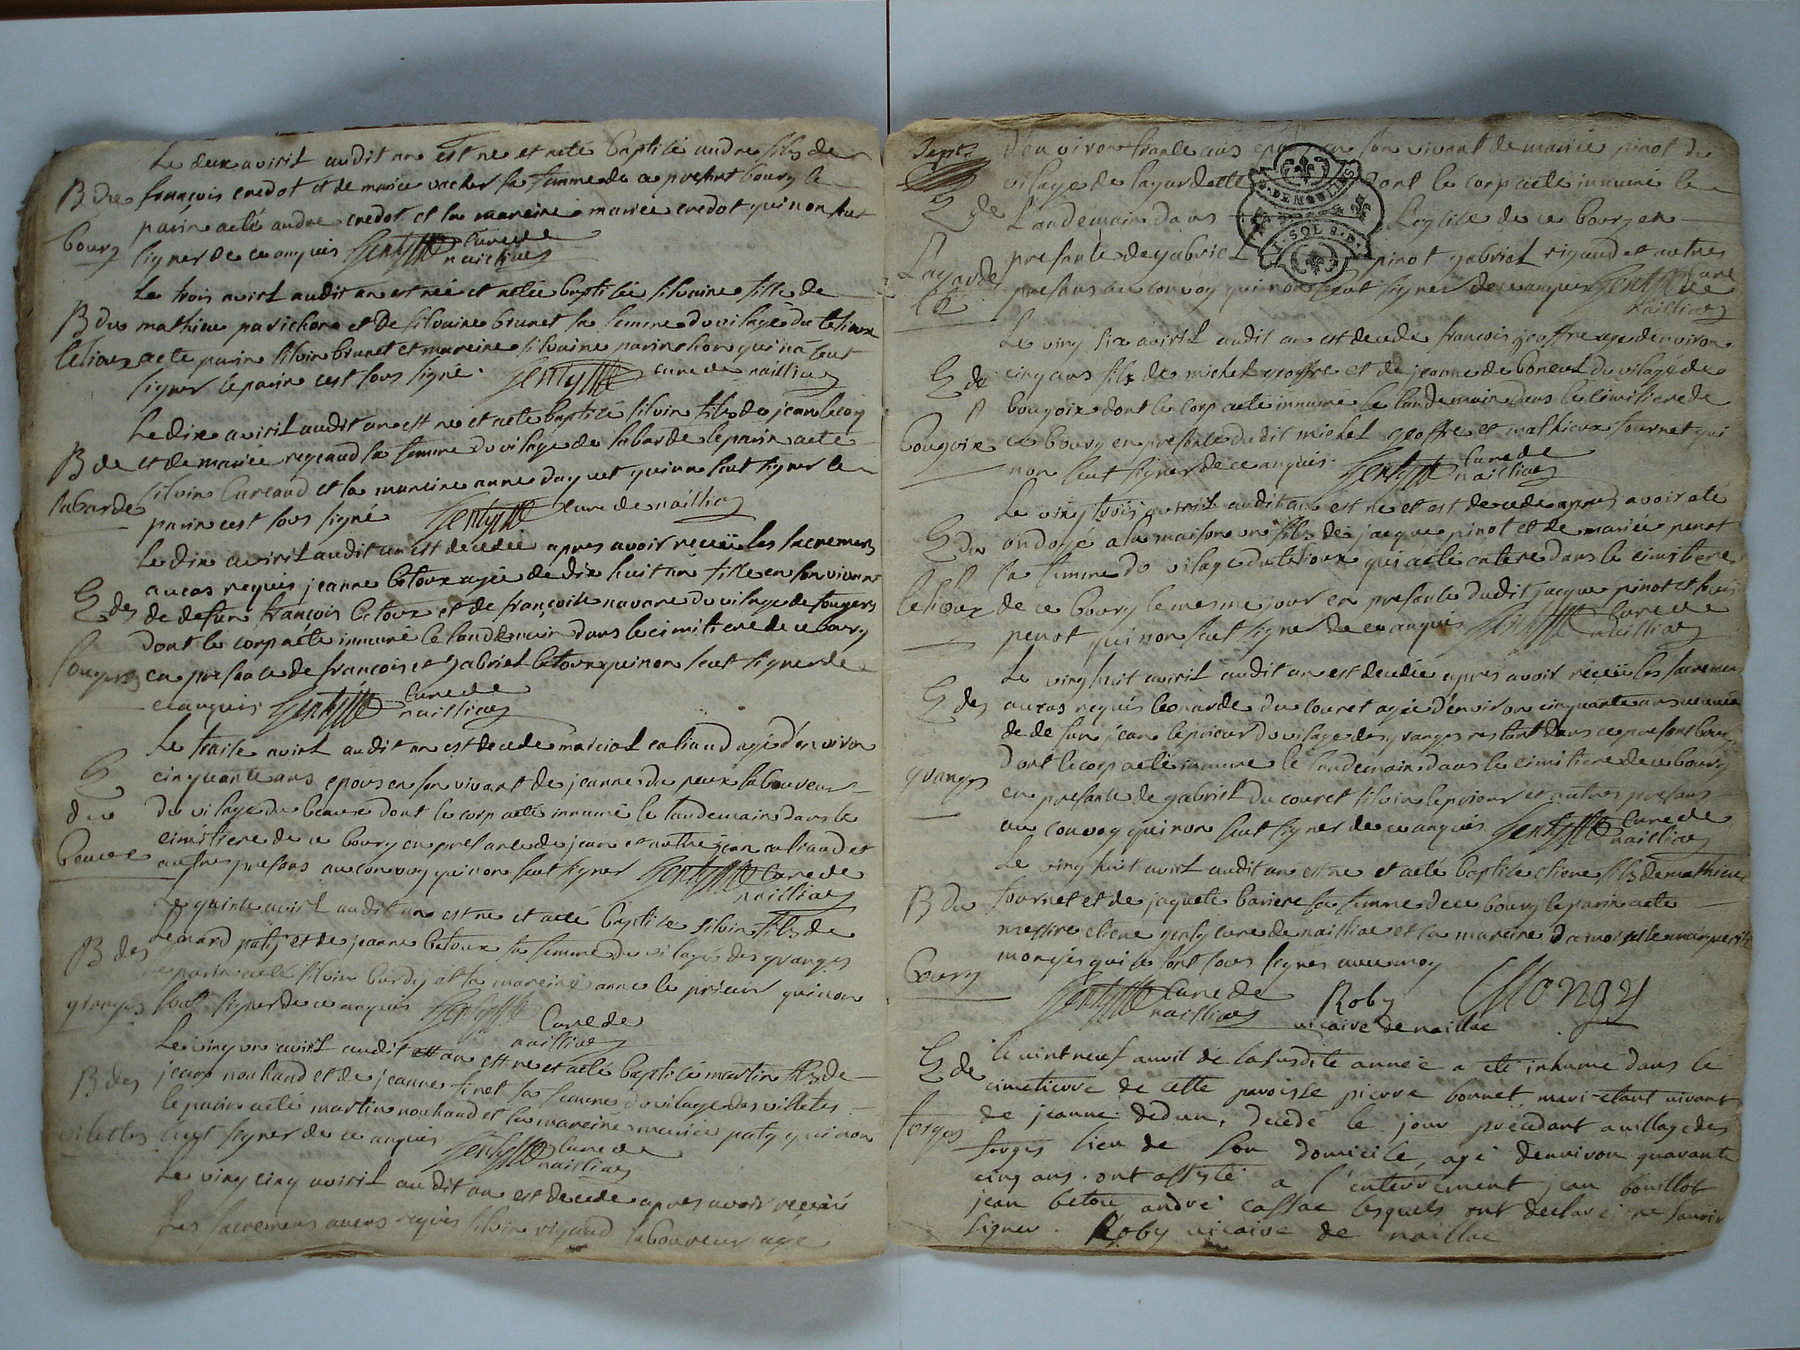 Le deux aviril audit an est ne et aeté baptisé andre fils de
B du françois credot et de marie vacher sa femme de ce presant bourg le
parin aeté andre credot et la mareine mariee credot qui non sut
bourg signer de ce anquis Gentyffe Cure de
nailliac
Le trois avirl audit an est née et aetée baptisée silvaine fille de
B du mathieu parichon et de silvaine brunet sa femme du vilage du telioux
telioux aeté parin silvin brunet et mareine silvaine parinchon qui na sut
signer le parin cest sous signé. Gentyffe cure de nailliac
Le dix aviril audit an est ne et aeté baptisé silvin fils de jean lecoq
B de et de mariee regeaud sa femme du vilage de labarde le parin aeté
silvin Cureaud et la mareine anne daquet qui une sut signer le
labarde parin cest sous signé Gentyffe Cure de nailliac
Le dix aviril audit an est decedée apres avoir receü les sacremens
aucas requis jeanne betoux agée de dix huit an fille en son vivant
E des de defun françois betoux et de françoise navane du vilage de fougeres
dont le corp aeté innumé le landemain dans le cimitiere de ce bourg
fougeres en presance de françois et gabriel betoux qui non sut signer de
ce anquis Gentyffe Cure de
nailliac
Le traise avirl audit an est decede marcial caliaud agé d'environ
E cinquante ans epous en son vivant de jeanne du peux laboureur
du du vilage du beaux dont le corp aeté innumé le landemain dans le
cimitiere de ce bourg en presance de jean et autre jean caliaud et
beaux autres presans au convoy qui non sut signer Gentyffe Cure de
nailliac
Le quinse avirl audit an est ne et aeté baptisé silvin fils de
B des renard paty et de jeanne betoux sa femme du vilage des granges
le parin aeté silvin bardy et la mareine anne le prieur qui non
granges sut signer de ce anquis Gentyffe Cure de
nailliac
Le vingt un avirl audit an est ne et aeté baptisé martin fils de
B des jean nouhaud et de jeanne finet sa femme du vilage des villetes
le parin aeté martin nouhaud et la mareine mariee paty qui non
vilettes sut signer de ce anquis Gentyffe Cure de
nailliac
Le ving cinq aviril audit an est decede apres avoir receü
les sacremens aucas requis silvin rigaud laboureur agé
Sept. d'environ trante ans epous en son vivant de mariee pinot du
vilage de lagardette dont le corp aeté innumé le
E de landemain dans l'eglise de ce bourg en
Lagarde presante de gabriel pinot gabriel rigaud et autres
te presans au convoy qui non sut signer de ce anquis Gentyffe cure de
nailliac
DE MOULINS
1. SOL 8. D.
Le ving six avirl audit an est decede francois geoffre age denviron
E de cinq ans fils de michel geoffre et de jeanne de boneul du vilage de
bougoix dont le corp aeté innumé le landemain dans le cimitiere de
bougoix ce bourg en presante dudit michel geoffre et mathieu fournet qui
non sut signer de ce anquis. Gentyffe Cure de
nailliac
Le ving trois aviril audit an est ne et est decede apres avoir été
E du ondoyé a la maison un fils de jacque pinot et de mariee penot
sa femme du vilage du telioux qui aeté enterre dans le cimitiere
telioux de ce bourg le mesme jour en presante dudit jacque pinot et
penot qui non sut signer de ce anquis Gentyffe Cure de
nailliac
Le ving huit avirl audit an est decedée apres avoir receü les sacremens
E des aucas requis leonarde du couret agée d'environ cinquante ans
de defun jean leprieur du vilage des granges restant dans ce presant bourg
granges dont le corp aeté innumé le landemain dans le cimitiere de ce bourg
en presante de gabriel du couret silvin leprieur et autres presans
au convoy qui non sut signer de ce anquis Gentyffe Cure de
nailliac
Le ving huit avirl audit an est ne et aeté baptisé etiene fils de mathieu
B du fournet et de jaquete bariere sa femme de ce bourg le parin aeté
messire etiene genty cure de nailliac et la mareine damoiselle marguerite
mongis qui se sont sous signes avec moy
bourg Gentyffe Cure de nailliac Roby Mongis
vicaire de naillac
E de le vint neuf avril de la susdite année a été inhumé dans le
cimetierre de cette paroisse pierre bonnet, mari etant vivant
forges de jeanne dedun, decédé le jour precedant au village des
forges lieu de son domicile, agé d'environ quarante
cinq ans. ont assisté a l'enterrement jean bouillot
jean betou andré cassac lesquels ont declaré ne savoir
signer. Roby vicaire de naillac